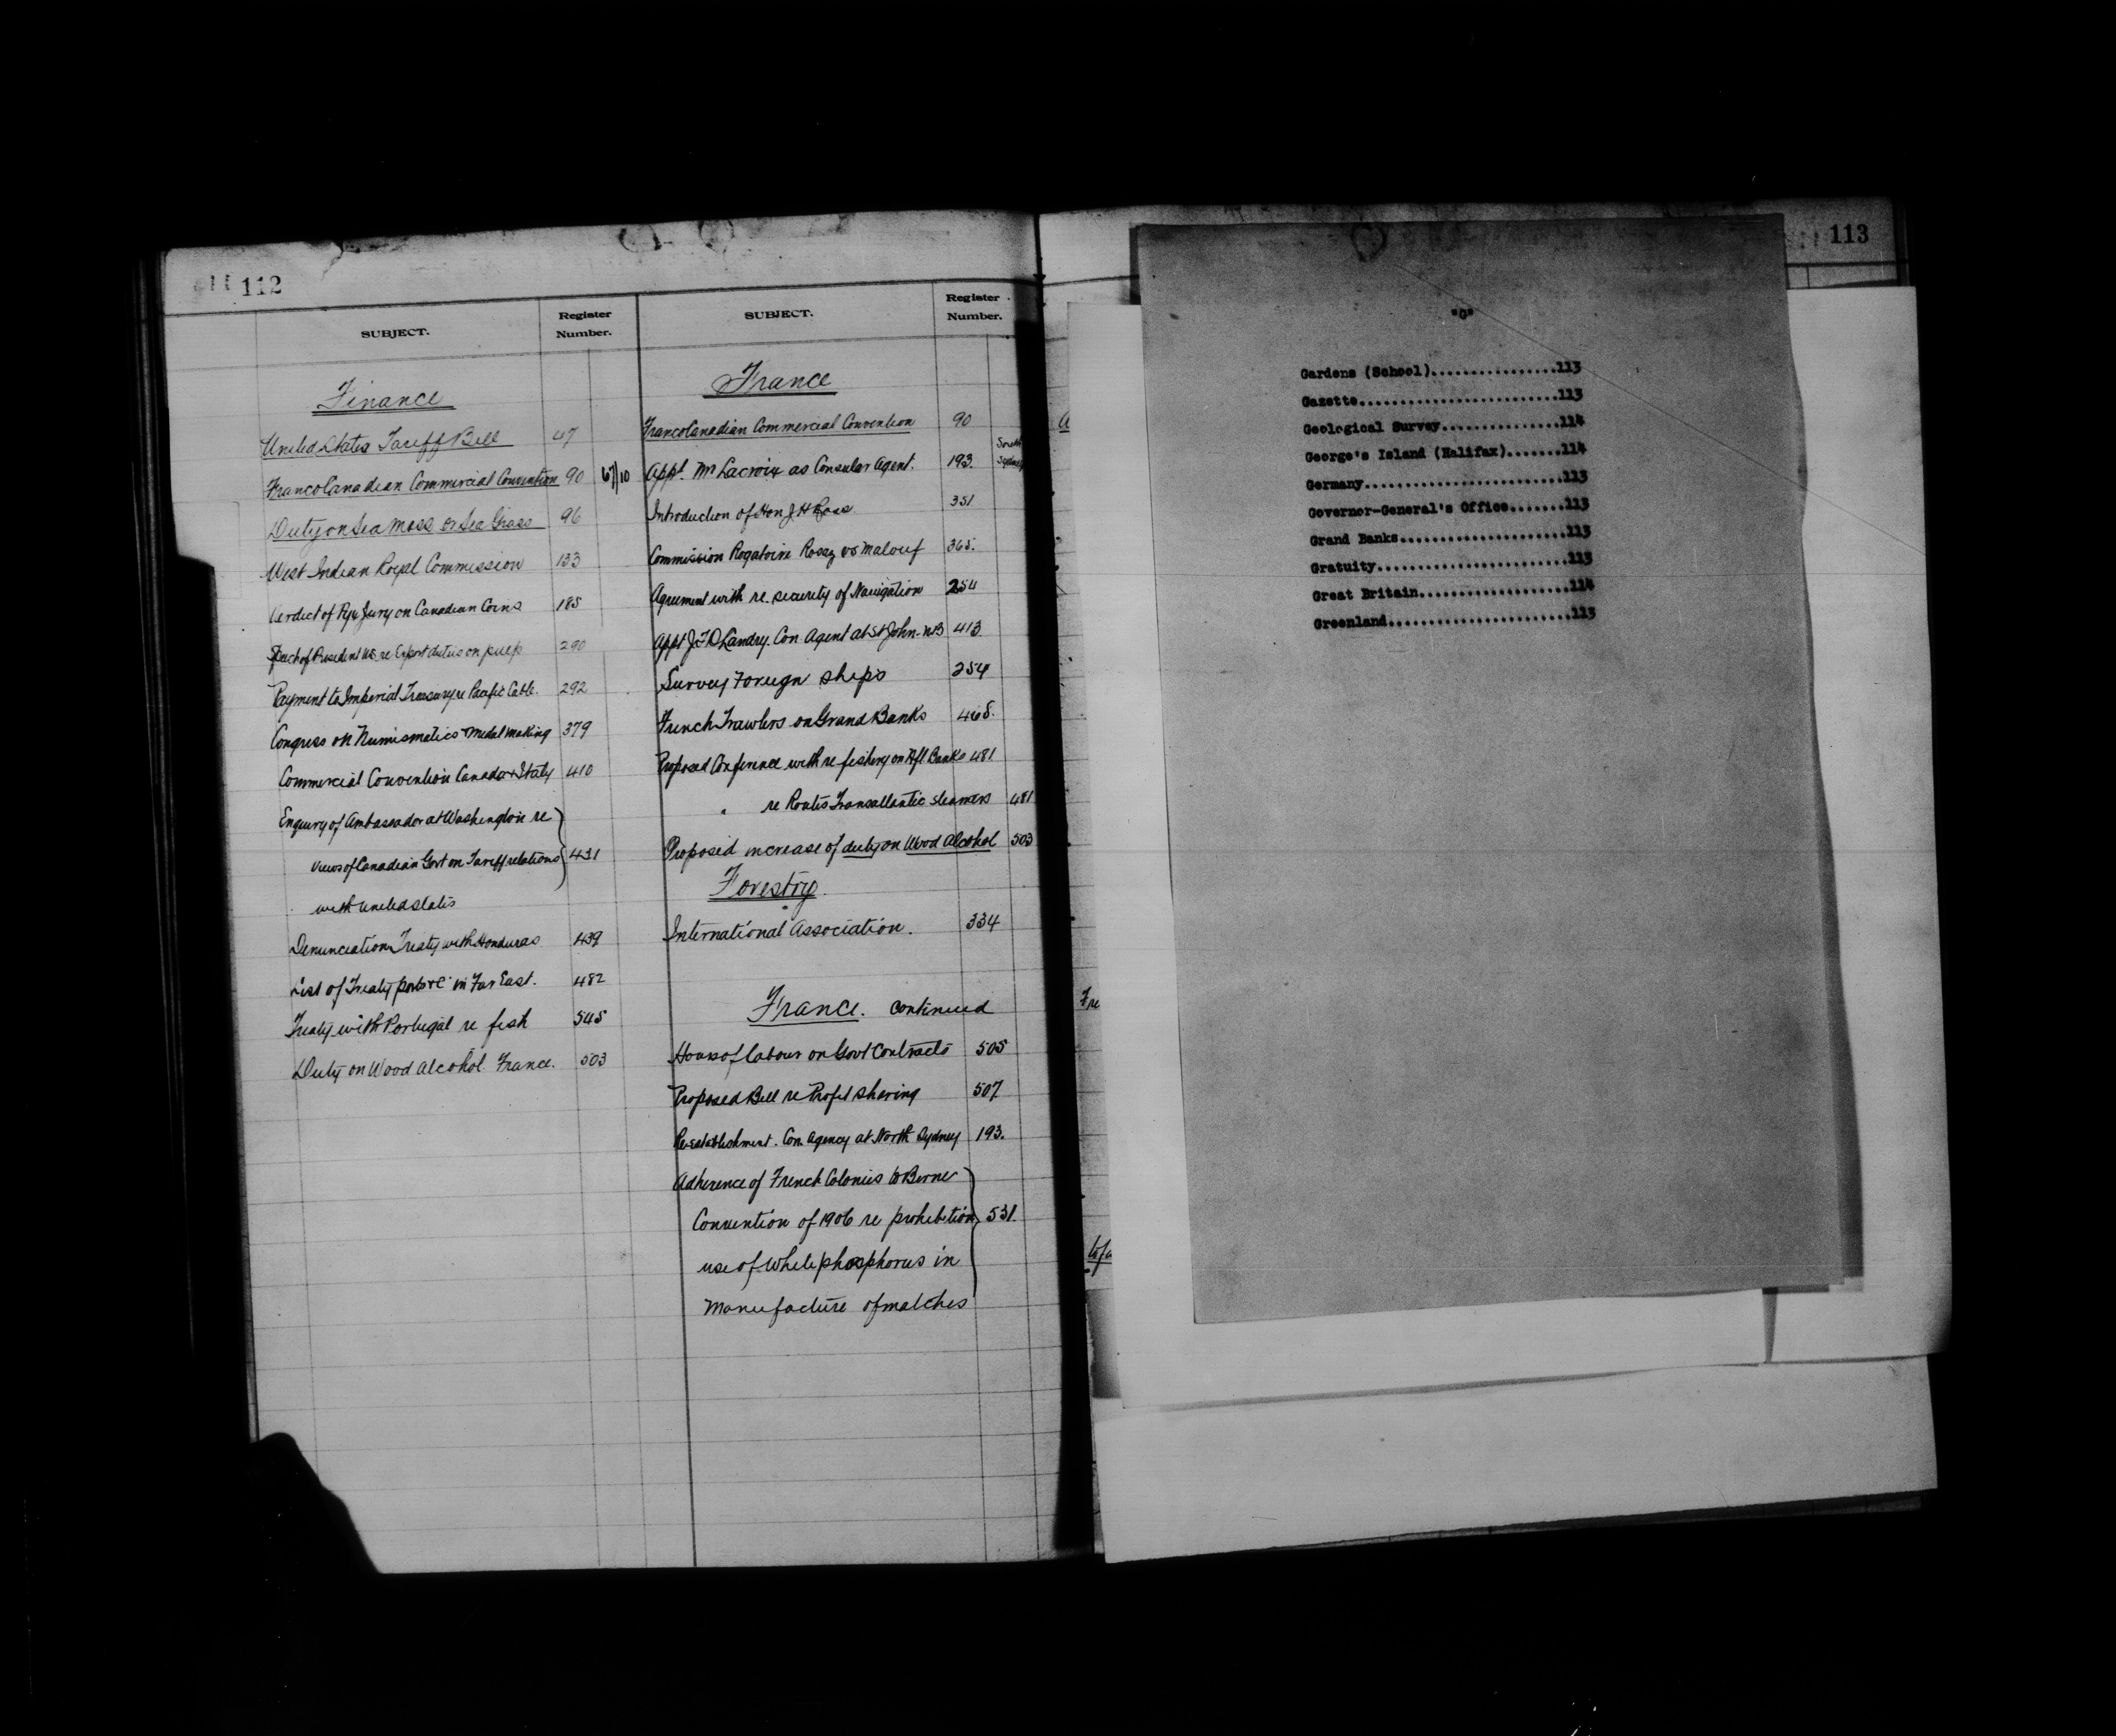 112
SUBJECT.
Register
Number.
Finance
United States Tariff Bill 47
Franco Canadian Commercial Convention 90 67/10
Duty on Sea Moss or Sea Grass 96
West Indian Royal Commission 133
Verdict of Pyx Jury on Canadian Coins 185
Speech of President US re Export duties on pulp 290
Payment to Imperial Treasury re Pacific Cable. 292
Congress on Numismatics & medal making 379
Commercial Convention Canada & Italy 410
Enquiry of Ambassador at Washington re
views of Canadian Govt on Tariff relations 431
with United States
Denunciation Treaty with Honduras 439
List of Treaty ports &c in Far East. 482
Treaty with Portugal re fish 545
Duty on Wood Alcohol. France. 503
SUBJECT.
Register
Number.
France
Franco Canadian Commercial Convention 90
Appt. Mr Lacroix as Consular Agent. 193. South Sydney
Introduction of Hon J H Ross 351
Commission Rogatoire Rosaz vs Malouf 365.
Agreement with re. security of Navigation 254
Appt J.F.D Landry. Con. Agent at St John. NB 413.
Survey Foreign ships 254
French Trawlers on Grand Banks 468.
Proposed Conference with re fishery on Nfl Banks 481
" re Routes Transatlantic steamers 481
Proposed increase of duty on Wood Alcohol 503
Forestry.
International Association. 334
France. continued
Hours of labour on Govt Contracts 505
Proposed Bill re Profit sharing 507
Re-establishment. Con. Agency at North Sydney 193.
Adherence of French Colonies to Berne
Convention of 1906 re prohibition 531.
use of White phosphorus in
Manufacture of matches
113
"G"
Gardens (School)................113
Gazette.........................113
Geological Survey...............114
George's Island (Halifax).......114
Germany.........................113
Governor-General's Office.......113
Grand Banks.....................113
Gratuity........................113
Great Britain...................114
Greenland.......................113